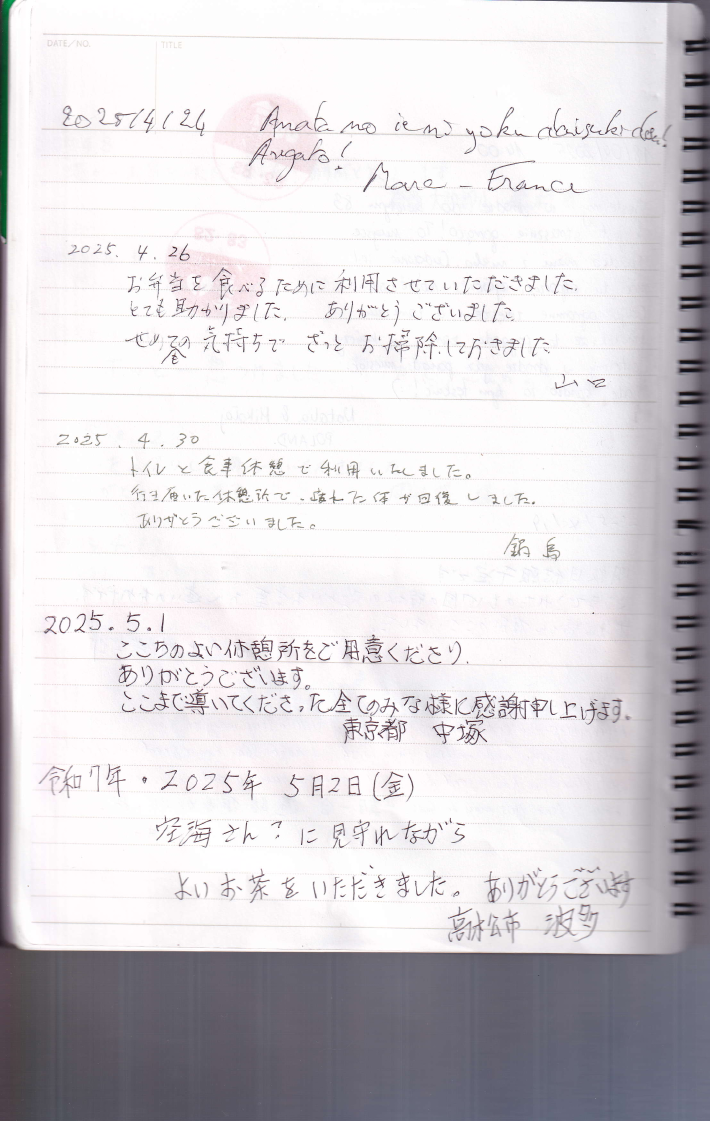 DATE/NO. TITLE
2025/4/24 Anata no ie ni yoku daisuki des!
Arigato!
Marc - France
2025. 4. 26
お弁当を食べるために利用させていただきました.
とても助かりました. ありがとうございました.
せめての気持ちで ざっと お掃除しておきました.
山口
2025. 4. 30
トイレと食事休憩で利用いたしました。
行き届いた休憩所で、疲れた体が回復しました.
ありがとうございました。
鍋島
2025.5.1
ここちのよい休憩所をご用意くださり.
ありがとうございます。
ここまで導いてくださった全てのみな様に感謝申し上げます。
東京都 中塚
令和7年・2025年 5月2日(金)
空海さん?に見守れながら
よいお茶をいただきました。ありがとうございます
高松市 波多